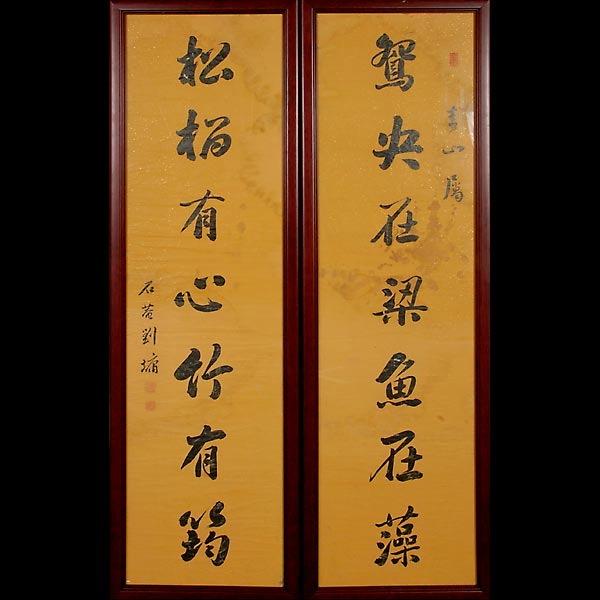 青山屬
鴛央在梁魚在藻
松栢有心竹有筠
石菴劉墉